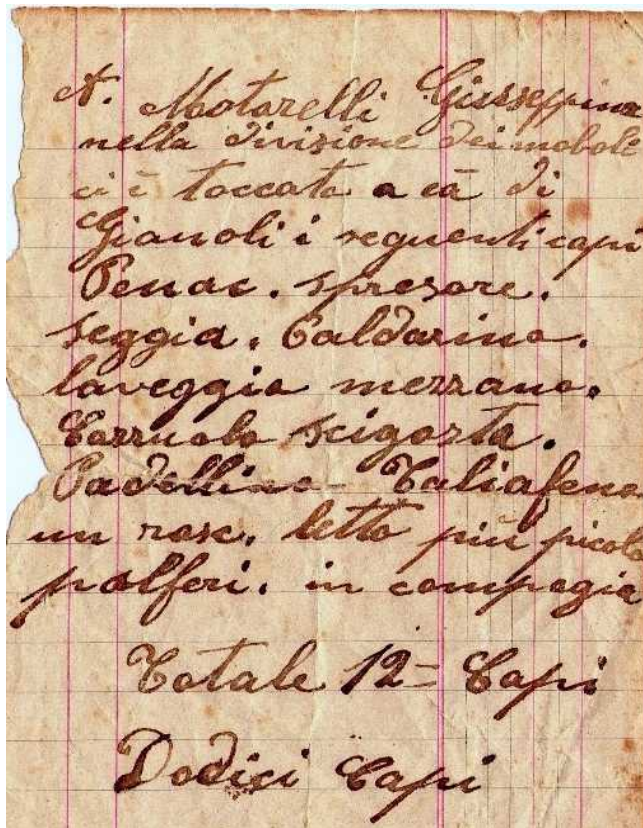 A. Motarelli Giusseppina
nella divisione dei moboli
ci è toccato a cà di
Gianoli i seguenti capi
Penac. spresore.
seggia. Caldarino.
laveggio mezzano.
Cazzuolo scigosta.
Padellino - Taliafeno
un rasc. letto più picolo
palferi. in compagia
Totale 12 = Capi
Dodici Capi